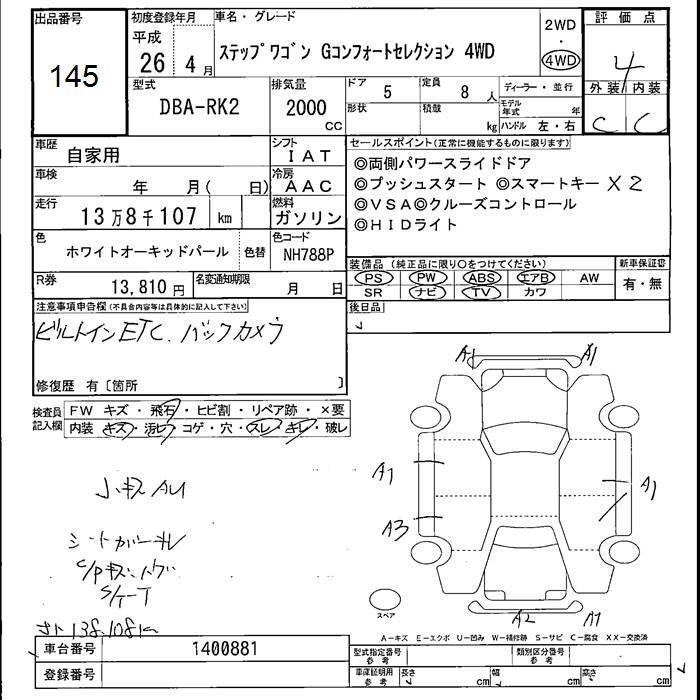 出品番号
145
初度登録年月
平成
26年4月
車名・グレード
ステップワゴン Gコンフォートセレクション 4WD
2WD
・
4WD
評価点
4
外装 内装
C C
型式
DBA-RK2
排気量
2000
CC
ドア
5
形状
定員
8人
積載
kg
ディーラー・並行
モデル年式 年
ハンドル 左・右
車歴
自家用
シフト
IAT
車検
年 月( 日)
冷房
AAC
走行
13万8千107 km
燃料
ガソリン
色
ホワイトオーキッドパール
色替
色コード
NH788P
R券
13,810円
名変通知期限
月 日
セールスポイント(正常に機能するものに限ります)
◎両側パワースライドドア
◎プッシュスタート ◎スマートキー X2
◎VSA◎クルーズコントロール
◎HIDライト
装備品 (純正品に限り○をつけてください)
PS PW ABS エアB AW
SR ナビ TV カワ
新車保証書
有・無
後日品
注意事項申告欄(不具合内容等は具体的に記入して下さい)
ビルトインETC、バックカメラ
修復歴 有〔箇所 〕
検査員記入欄
FW キズ・飛石・ヒビ割・リペア跡・×要
内装 キズ・汚ビ・コゲ・穴・スレ・キレ・破レ
小キズAU
シートカバーキレ
A1 A1
A1
A1
A3
A2 A1
スペア
A-キズ E-エクボ U-凹み W-補修跡 S-サビ C-腐食 XX-交換済
車台番号
1400881
登録番号
型式指定番号
参考
類別区分番号
参考
車庫証明用
参考
長さ cm
幅 cm
高さ cm